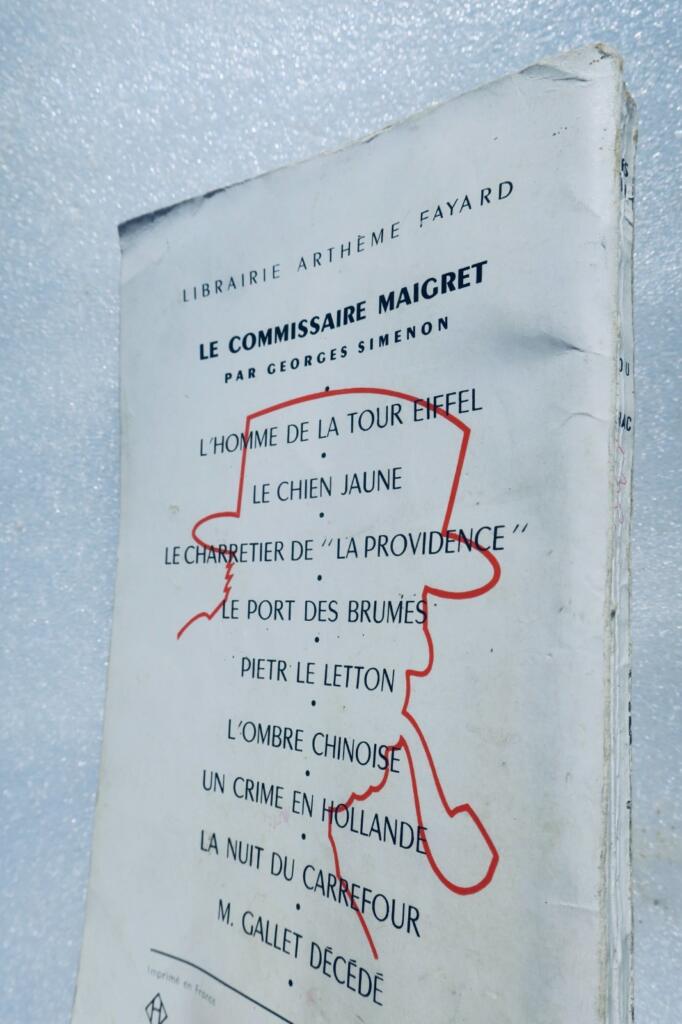 LIBRAIRIE ARTHÈME FAYARD
LE COMMISSAIRE MAIGRET
PAR GEORGES SIMENON
L'HOMME DE LA TOUR EIFFEL
LE CHIEN JAUNE
LE CHARRETIER DE "LA PROVIDENCE"
LE PORT DES BRUMES
PIETR LE LETTON
L'OMBRE CHINOISE
UN CRIME EN HOLLANDE
LA NUIT DU CARREFOUR
M. GALLET DÉCÉDÉ
Imprimé en France